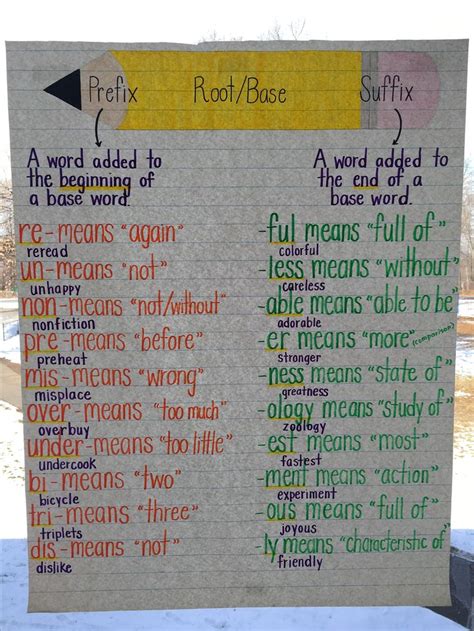 Prefix Root/Base Suffix
A word added to
the beginning of
a base word.
re-means "again"
reread
un-means "not"
unhappy
non-means "not/without"
nonfiction
pre-means "before"
preheat
mis-means "wrong"
misplace
over-means "too much"
overbuy
under-means "too little"
undercook
bi-means "two"
bicycle
tri-means "three"
triplets
dis-means "not"
dislike
A word added to
the end of a
base word.
-ful means "full of"
colorful
-less means "without"
careless
-able means "able to be"
adorable
-er means "more" (comparison)
stronger
-ness means "state of"
greatness
-ology means "study of"
zoology
-est means "most"
fastest
-ment means "action"
experiment
-ous means "full of"
joyous
-ly means "characteristic of"
friendly